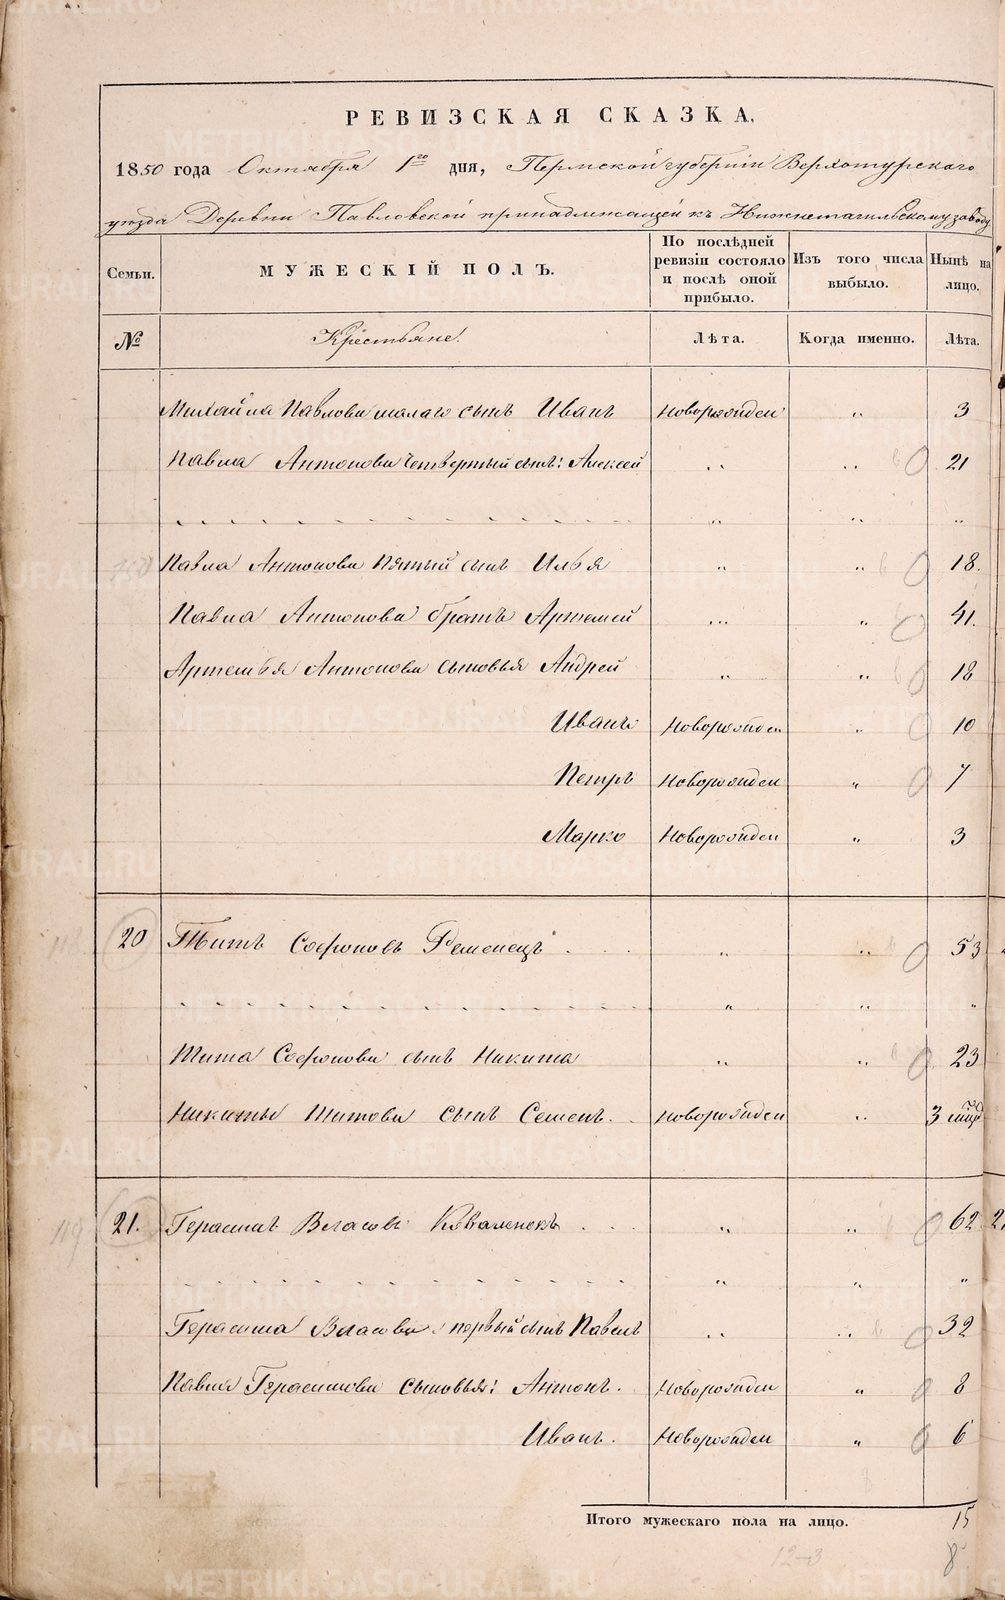 РЕВИЗСКАЯ СКАЗКА.
1850 года Октября 1го дня, Пермской губернiи Верхотурскаго
уѣзда Деревни Павловской принадлежащей къ Нижнетагильскому заводу
Семьи. МУЖЕСКIЙ ПОЛЪ. По послѣдней ревизiи состояло и послѣ оной прибыло. Изъ того числа выбыло. Нынѣ на лицо.
№ Крестьяне. Лѣта. Когда именно. Лѣта.
Михайла Павлова малаго сынъ Иванъ новорожден „ 3
Павла Антонова четвертый сынъ: Алексей „ „ 21
„ „ „
Павла Антонова пятый сынъ Илья „ „ 18.
Павла Антонова братъ Артемей „ „ 41.
Артемья Антонова сыновья Андрей „ „ 18
Иванъ Новорожден „ 10
Петръ Новорожден „ 7
Марко Новорожден „ 3
118 20 Титъ Софроновъ Ременецъ „ „ 53
„ „ „
Тита Софронова сынъ Никита „ „ 23
Никиты Титова сынъ Семенъ. новорожден „ 3
119 21. Герасимъ Власовъ Коваленскъ „ „ 62
„ „ „
Герасима Власова первый сынъ Павелъ „ „ 32
Павла Герасимова сыновья: Антонъ. Новорожден „ 8
Иванъ. Новорожден „ 6
Итого мужескаго пола на лицо. 15
12-3 8
METRIKI.GASO-URAL.RU